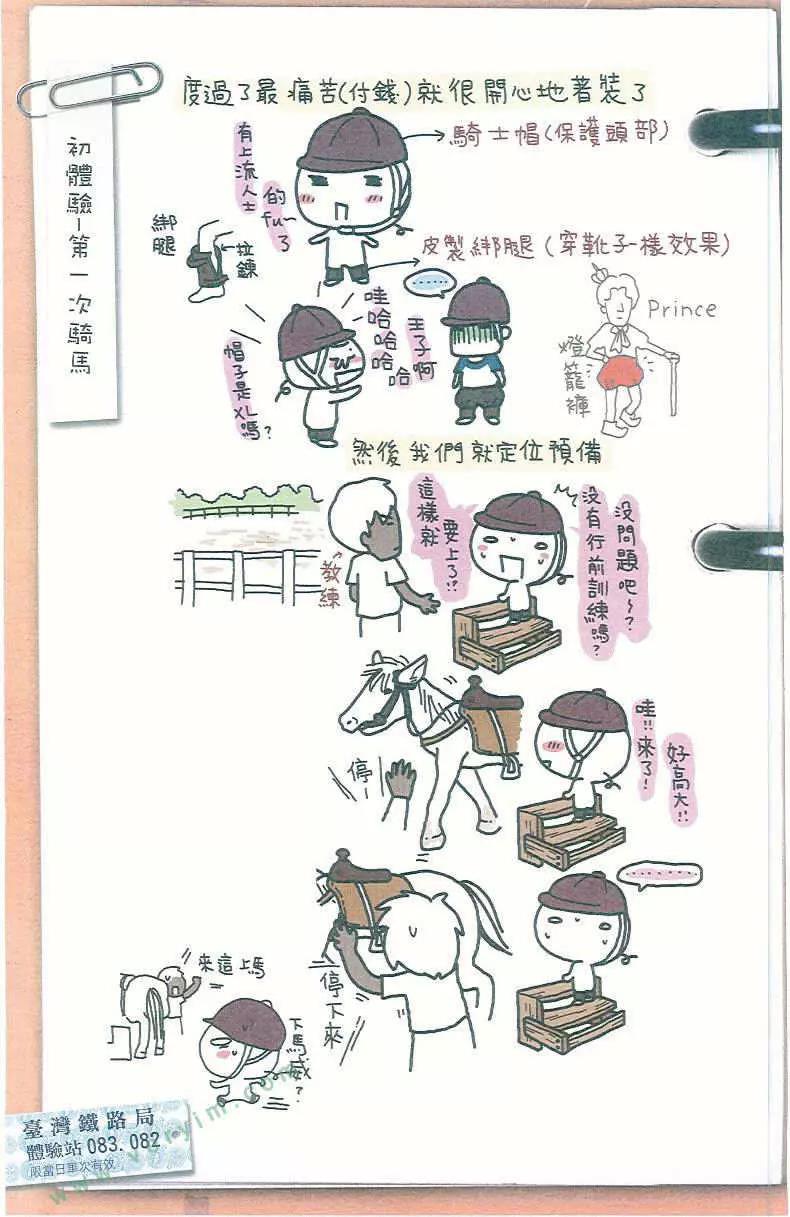 度過了最痛苦(付錢)就很開心地著裝了
初體驗-第一次騎馬
有上流人士
的fu~了
騎士帽(保護頭部)
綁腿
拉鍊
皮製綁腿(穿靴子一樣效果)
帽子是XL嗎?
哇哈哈哈哈
王子啊
Prince
燈籠褲
然後我們就定位預備
教練
這樣就
要上了!?
沒問題吧~?
沒有行前訓練嗎?
停!
哇!!來了!
好高大!!
停下來
來這上馬
下馬威?
臺灣鐵路局
體驗站 083.082
限當日車次有效